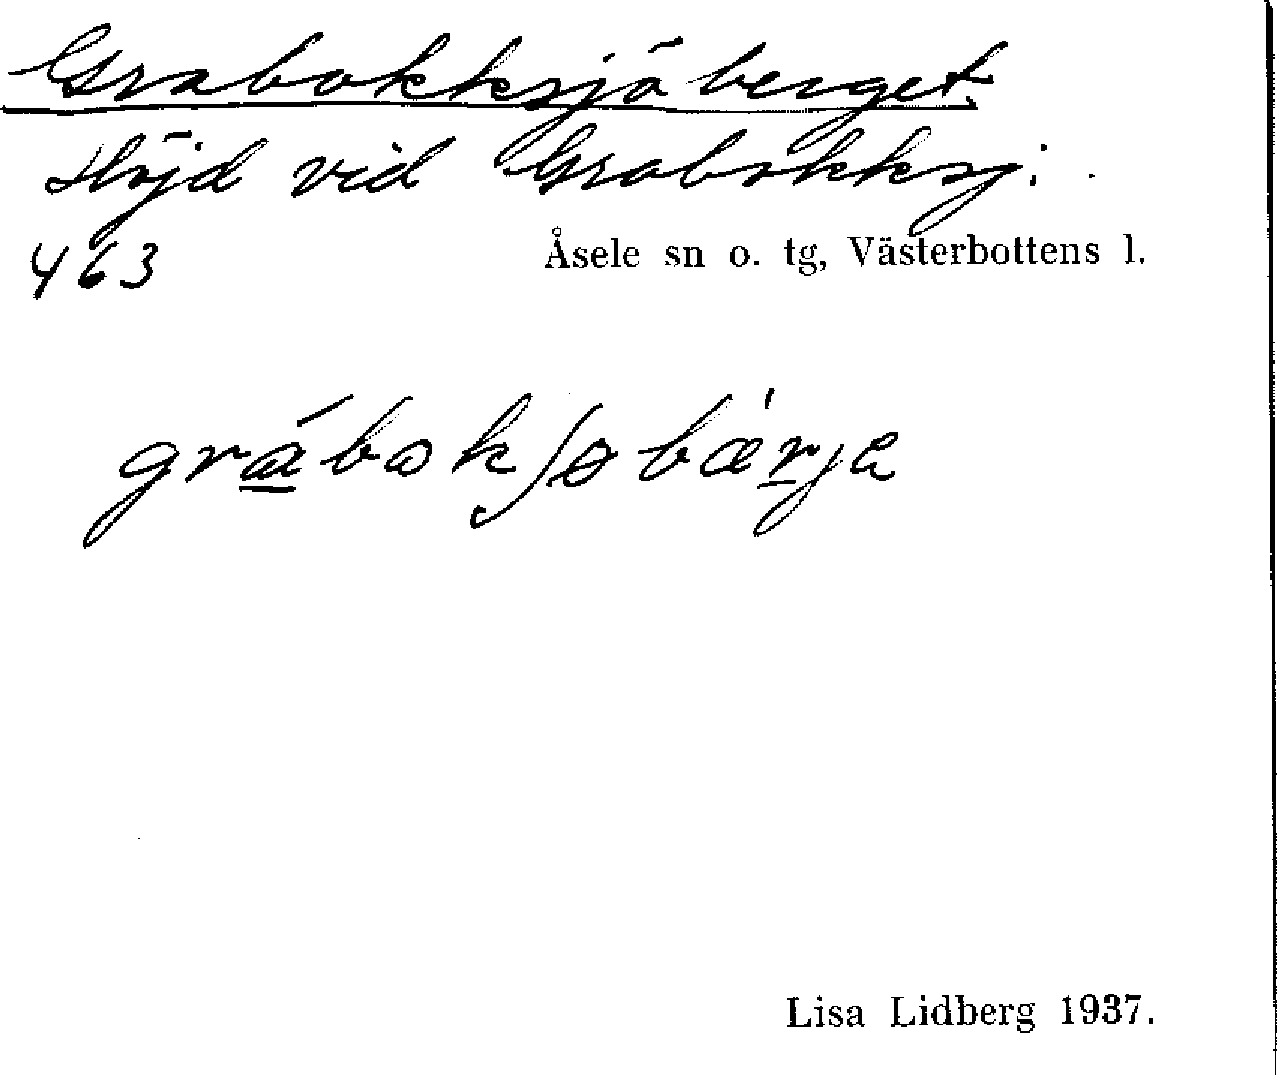 Grabokksjöberget.
Höjd vid Grabokksj.
463 Åsele sn o. tg, Västerbottens l.
grábokʃøbæ̀rja
Lisa Lidberg 1937.